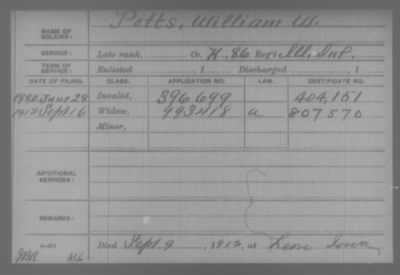 Potts, William W.
NAME OF SOLDIER:
SERVICE: Late rank, Co. H. 86 Reg't Ill. Inf.
TERM OF SERVICE: Enlisted 1 , Discharged 1
DATE OF FILING. CLASS. APPLICATION NO. LAW. CERTIFICATE NO.
1880 June 28 Invalid, 396699 404,151
1912 Sept 16 Widow, 993418 a 807570
Minor,
ADDITIONAL SERVICES:
REMARKS:
Died Sept. 9, 1912, at Leon Iowa